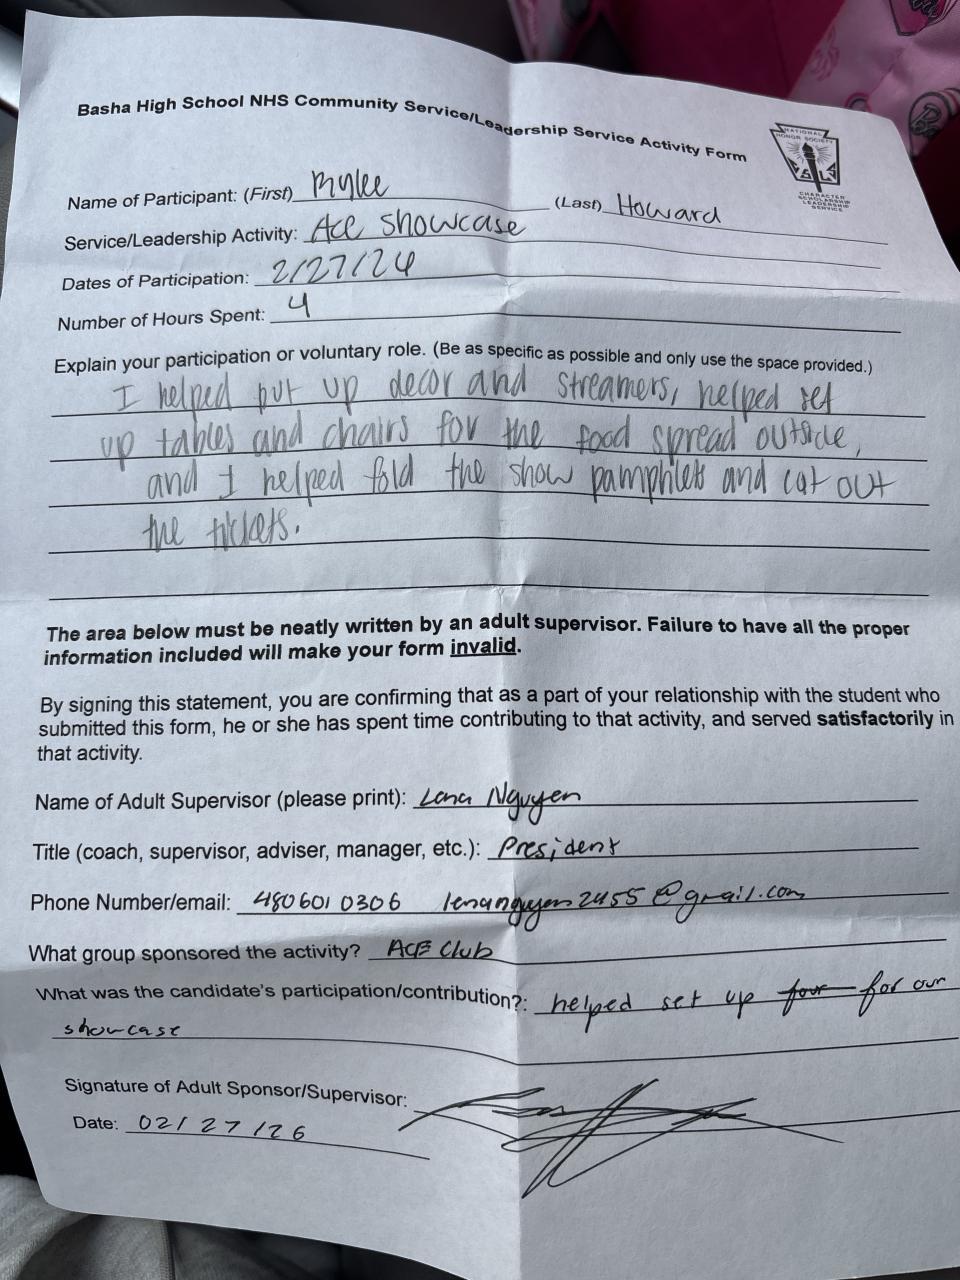 Basha High School NHS Community Service/Leadership Service Activity Form
NATIONAL
HONOR SOCIETY
C S L S
CHARACTER
SCHOLARSHIP
LEADERSHIP
SERVICE
Name of Participant: (First) Rylee (Last) Howard
Service/Leadership Activity: Ace Showcase
Dates of Participation: 2/27/26
Number of Hours Spent: 4
Explain your participation or voluntary role. (Be as specific as possible and only use the space provided.)
I helped put up decor and streamers, helped set
up tables and chairs for the food spread outside,
and I helped fold the show pamphlets and cut out
the tickets.
The area below must be neatly written by an adult supervisor. Failure to have all the proper
information included will make your form invalid.
By signing this statement, you are confirming that as a part of your relationship with the student who
submitted this form, he or she has spent time contributing to that activity, and served satisfactorily in
that activity.
Name of Adult Supervisor (please print): Lena Nguyen
Title (coach, supervisor, adviser, manager, etc.): President
Phone Number/email: 480 601 0306 lenanguyen2455@gmail.com
What group sponsored the activity? ACE Club
What was the candidate's participation/contribution?: helped set up four for our
showcase
Signature of Adult Sponsor/Supervisor:
Date: 02/27/26